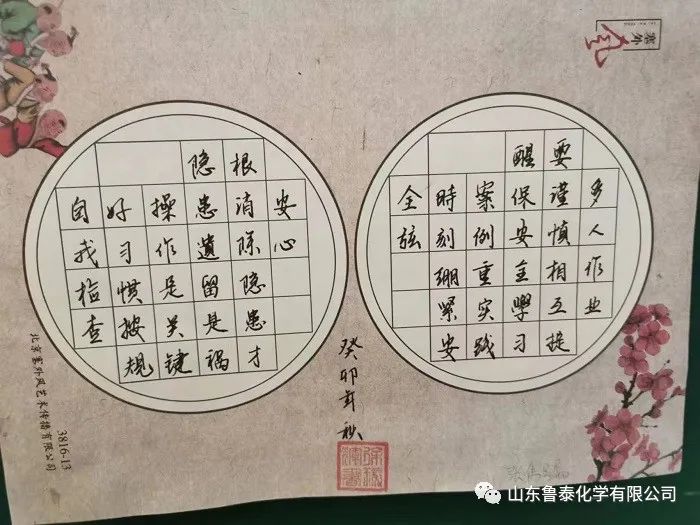 塞外
风
多人作业
要谨慎相互提
醒保安全學习
案例重实践
時刻绷紧安
全弦
自我检查
好习惯按规
操作是关键
隐患遗留是祸
根消除隐患才
安心
癸卯年秋
北京塞外风艺术传播有限公司
3816-13
山东鲁泰化学有限公司